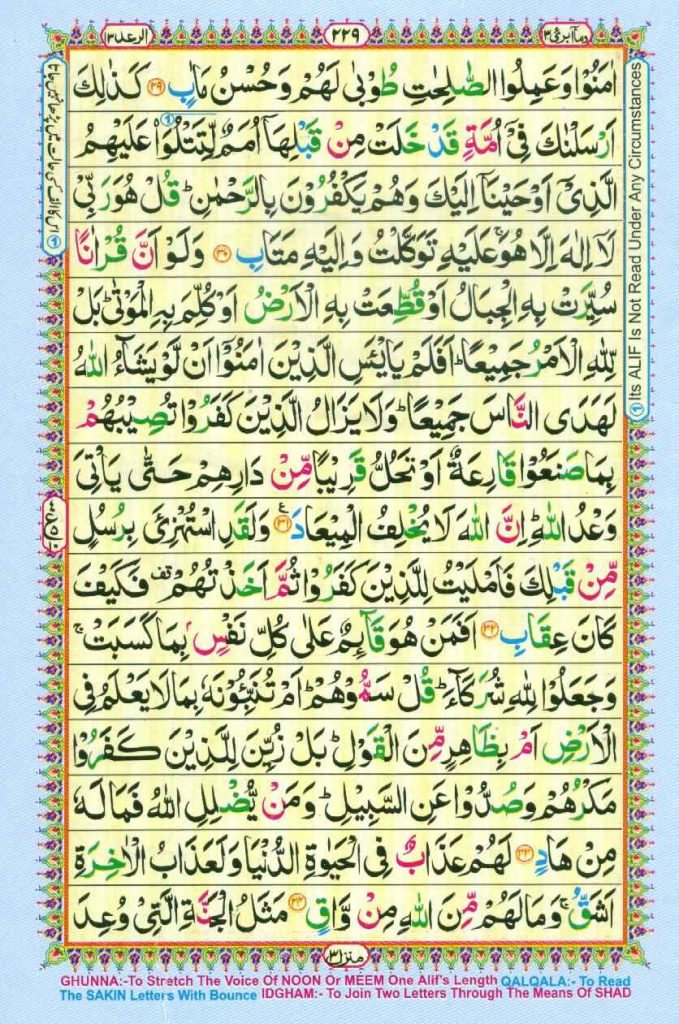 الرعد ١٣
٢٢٩
ومآ ابرئ ١٣
اٰمَنُوۡا وَعَمِلُوا الصّٰلِحٰتِ طُوۡبٰى لَهُمۡ وَحُسۡنُ مَاٰبٍ ﴿۲۹﴾ كَذٰلِكَ
اَرۡسَلۡنٰكَ فِىۡۤ اُمَّةٍ قَدۡ خَلَتۡ مِنۡ قَبۡلِهَاۤ اُمَمٌ لِّـتَتۡلُوَا۟ عَلَيۡهِمُ
الَّذِىۡۤ اَوۡحَيۡنَاۤ اِلَيۡكَ وَهُمۡ يَكۡفُرُوۡنَ بِالرَّحۡمٰنِ‌ؕ قُلۡ هُوَ رَبِّىۡ
لَاۤ اِلٰهَ اِلَّا هُوَ‌ۚ عَلَيۡهِ تَوَكَّلۡتُ وَاِلَيۡهِ مَتَابِ ﴿۳۰﴾ وَلَوۡ اَنَّ قُرۡاٰنًا
سُيِّرَتۡ بِهِ الۡجِبَالُ اَوۡ قُطِّعَتۡ بِهِ الۡاَرۡضُ اَوۡ كُلِّمَ بِهِ الۡمَوۡتٰى‌ؕ بَلْ
لِّلّٰهِ الۡاَمۡرُ جَمِيۡعًا‌ؕ اَفَلَمۡ يَايۡـَٔسِ الَّذِيۡنَ اٰمَنُوۡۤا اَنۡ لَّوۡ يَشَآءُ اللّٰهُ
لَهَدَى النَّاسَ جَمِيۡعًا‌ؕ وَلَا يَزَالُ الَّذِيۡنَ كَفَرُوۡا تُصِيۡبُهُمۡ
بِمَا صَنَعُوۡا قَارِعَةٌ اَوۡ تَحُلُّ قَرِيۡبًا مِّنۡ دَارِهِمۡ حَتّٰى يَاۡتِىَ
وَعۡدُ اللّٰهِ‌ؕ اِنَّ اللّٰهَ لَا يُخۡلِفُ الۡمِيۡعَادَ ﴿۳۱﴾ وَلَـقَدِ اسۡتُهۡزِئَ بِرُسُلٍ
مِّنۡ قَبۡلِكَ فَاَمۡلَيۡتُ لِلَّذِيۡنَ كَفَرُوۡا ثُمَّ اَخَذۡتُهُمۡ فَكَيۡفَ
كَانَ عِقَابِ ﴿۳۲﴾ اَفَمَنۡ هُوَ قَآٮِٕمٌ عَلٰى كُلِّ نَفۡسٍۢ بِمَا كَسَبَتۡ‌ۚ
وَجَعَلُوۡا لِلّٰهِ شُرَكَآءَ ؕ قُلۡ سَمُّوۡهُمۡ‌ؕ اَمۡ تُنَـبِّــُٔوۡنَهٗ بِمَا لَا يَعۡلَمُ فِى
الۡاَرۡضِ اَمۡ بِظَاهِرٍ مِّنَ الۡقَوۡلِ‌ؕ بَلۡ زُيِّنَ لِلَّذِيۡنَ كَفَرُوۡا
مَكۡرُهُمۡ وَصُدُّوۡا عَنِ السَّبِيۡلِ‌ؕ وَمَنۡ يُّضۡلِلِ اللّٰهُ فَمَا لَهٗ
مِنۡ هَادٍ ﴿۳۳﴾ لَهُمۡ عَذَابٌ فِى الۡحَيٰوةِ الدُّنۡيَا وَلَعَذَابُ الۡاٰخِرَةِ
اَشَقُّ‌ۚ وَمَا لَهُمۡ مِّنَ اللّٰهِ مِنۡ وَّاقٍ ﴿۳۴﴾ مَثَلُ الۡجَـنَّةِ الَّتِىۡ وُعِدَ
منزل ٣
① Its ALIF Is Not Read Under Any Circumstances
① اس کا الف کسی حالت میں پڑھا نہیں جاتا
GHUNNA:-To Stretch The Voice Of NOON Or MEEM One Alif's Length QALQALA:- To Read
The SAKIN Letters With Bounce IDGHAM:- To Join Two Letters Through The Means Of SHAD